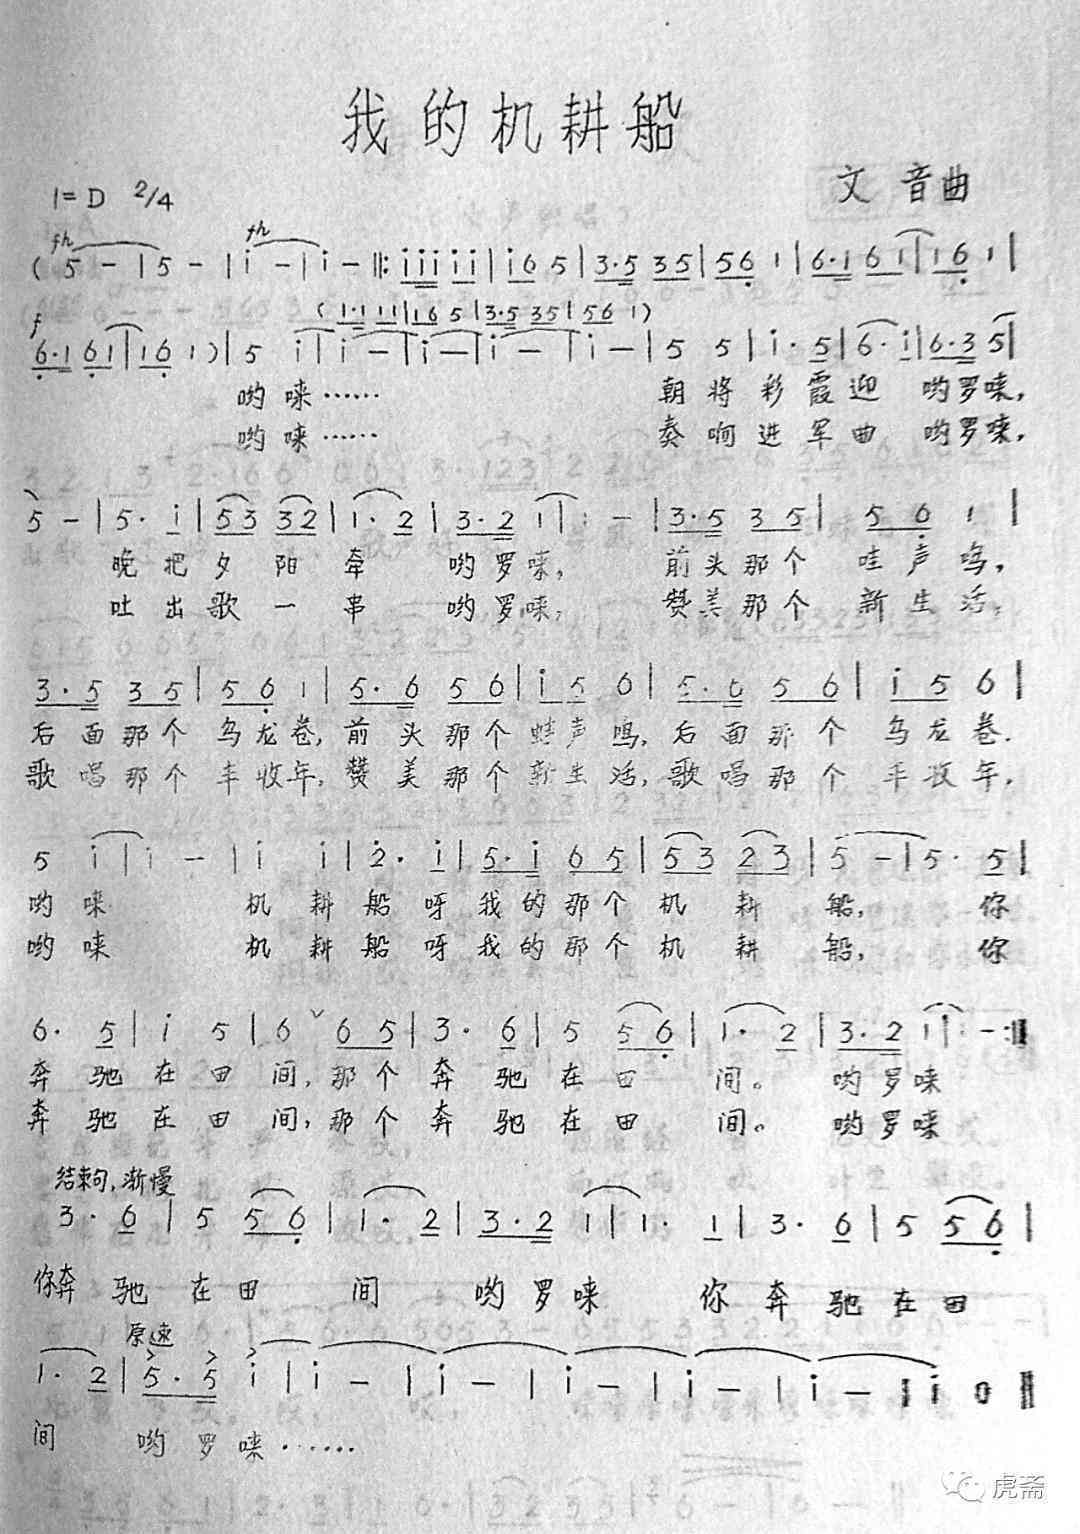 我的机耕船
1=D 2/4
文音曲
fh fh
( 5 - | 5 - | i - | i - ‖: i i i i i | i 6 5 | 3·5 3 5 | 5 6 1 | 6·1 6 1 | 1 6 1 |
( 1·1 1 1 | 1 6 5 | 3·5 3 5 | 5 6 1 )
f
6·1 6 1 | 1 6 1 ) | 5 i | i - | i - | i - | i - | 5 5 | i· 5 | 6· i | 6·3 5 |
哟 唻…… 朝 将 彩 霞 迎 哟罗唻,
哟 唻…… 奏 响 进 军 曲 哟罗唻,
5 - | 5· i | 5 3 3 2 | 1· 2 | 3·2 1 | 1 - | 3·5 3 5 | 5 6 1 |
晚 把 夕 阳 牵 哟 罗 唻, 前 头 那 个 哇 声 鸣,
吐 出 歌 一 串 哟 罗 唻, 赞 美 那 个 新 生 活,
3·5 3 5 | 5 6 1 | 5·6 5 6 | i 5 6 | 5·6 5 6 | i 5 6 |
后 面 那 个 乌 龙 卷, 前 头 那 个 蛙 声 鸣, 后 面 那 个 乌 龙 卷.
歌 唱 那 个 丰 收 年, 赞 美 那 个 新 生 活, 歌 唱 那 个 丰 收 年.
5 i | i - | i i | 2· i | 5·i 6 5 | 5 3 2 3 | 5 - | 5· 5 |
哟 唻 机 耕 船 呀 我 的 那 个 机 耕 船, 你
哟 唻 机 耕 船 呀 我 的 那 个 机 耕 船, 你
6· 5 | i 5 | 6 ˅ 6 5 | 3· 6 | 5 5 6 | 1· 2 | 3·2 1 | 1 - :‖
奔 驰 在 田 间, 那 个 奔 驰 在 田 间。 哟 罗 唻
奔 驰 在 田 间, 那 个 奔 驰 在 田 间。 哟 罗 唻
结束句,渐慢
3· 6 | 5 5 6 | 1· 2 | 3·2 1 | 1· 1 | 3· 6 | 5 5 6 |
你奔 驰 在 田 间 哟 罗 唻 你 奔 驰 在 田
原速
1· 2 | 5·5 i | i - | i - | i - | i - | i - | i 0 ‖
间 哟 罗 唻……
虎斋